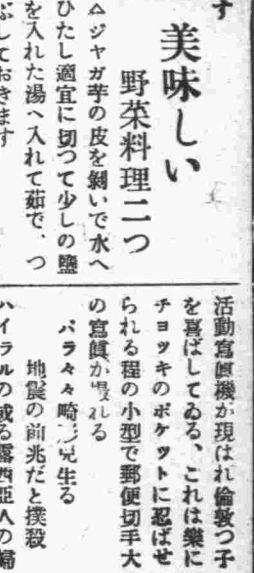 す
美味しい
野菜料理二つ
△ジャガ芋の皮を剝いで水へ
ひたし適宜に切つて少しの鹽
を入れた湯へ入れて茹で、つ
ぶしておきます
活動寫眞機が現はれ倫敦つ子
を喜ばしてゐる、これは樂に
チヨツキのポケツトに忍ばせ
られる程の小型で郵便切手大
の寫眞が撮れる
バラ々々畸形兒生る
地震の前兆だと撲殺
ハイラルの或る露西亞人の婦